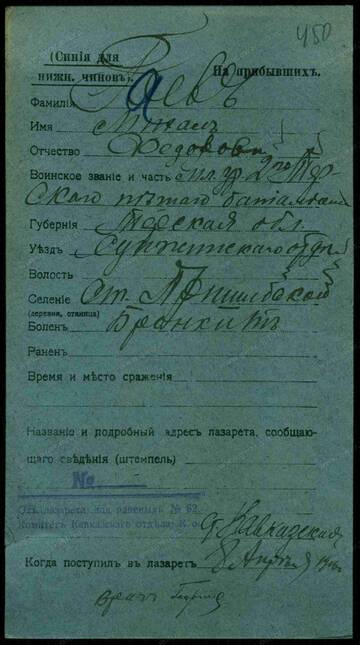 450
(Синія для
нижн. чиновъ).
На прибывшихъ.
Фамилія Гаевъ
Имя Михаилъ
Отчество Федоровъ
Воинское званіе и часть мл. ур. 2го Тер-
скаго пѣшаго баталіона
Губернія Терская обл.
Уѣздъ Сунженскаго отд.
Волость
Селеніе Ст.
(деревня, станица)
Боленъ Бронхитъ
Раненъ
Время и мѣсто сраженія
Названіе и подробный адресъ лазарета, сообщаю-
щаго свѣдѣнія (штемпель)
№
лазарета для раненыхъ № 62.
Комитетъ Кавказскаго отдѣла К
ст. Кавказская
Когда поступилъ въ лазаретъ 8 Апрѣля
врачъ